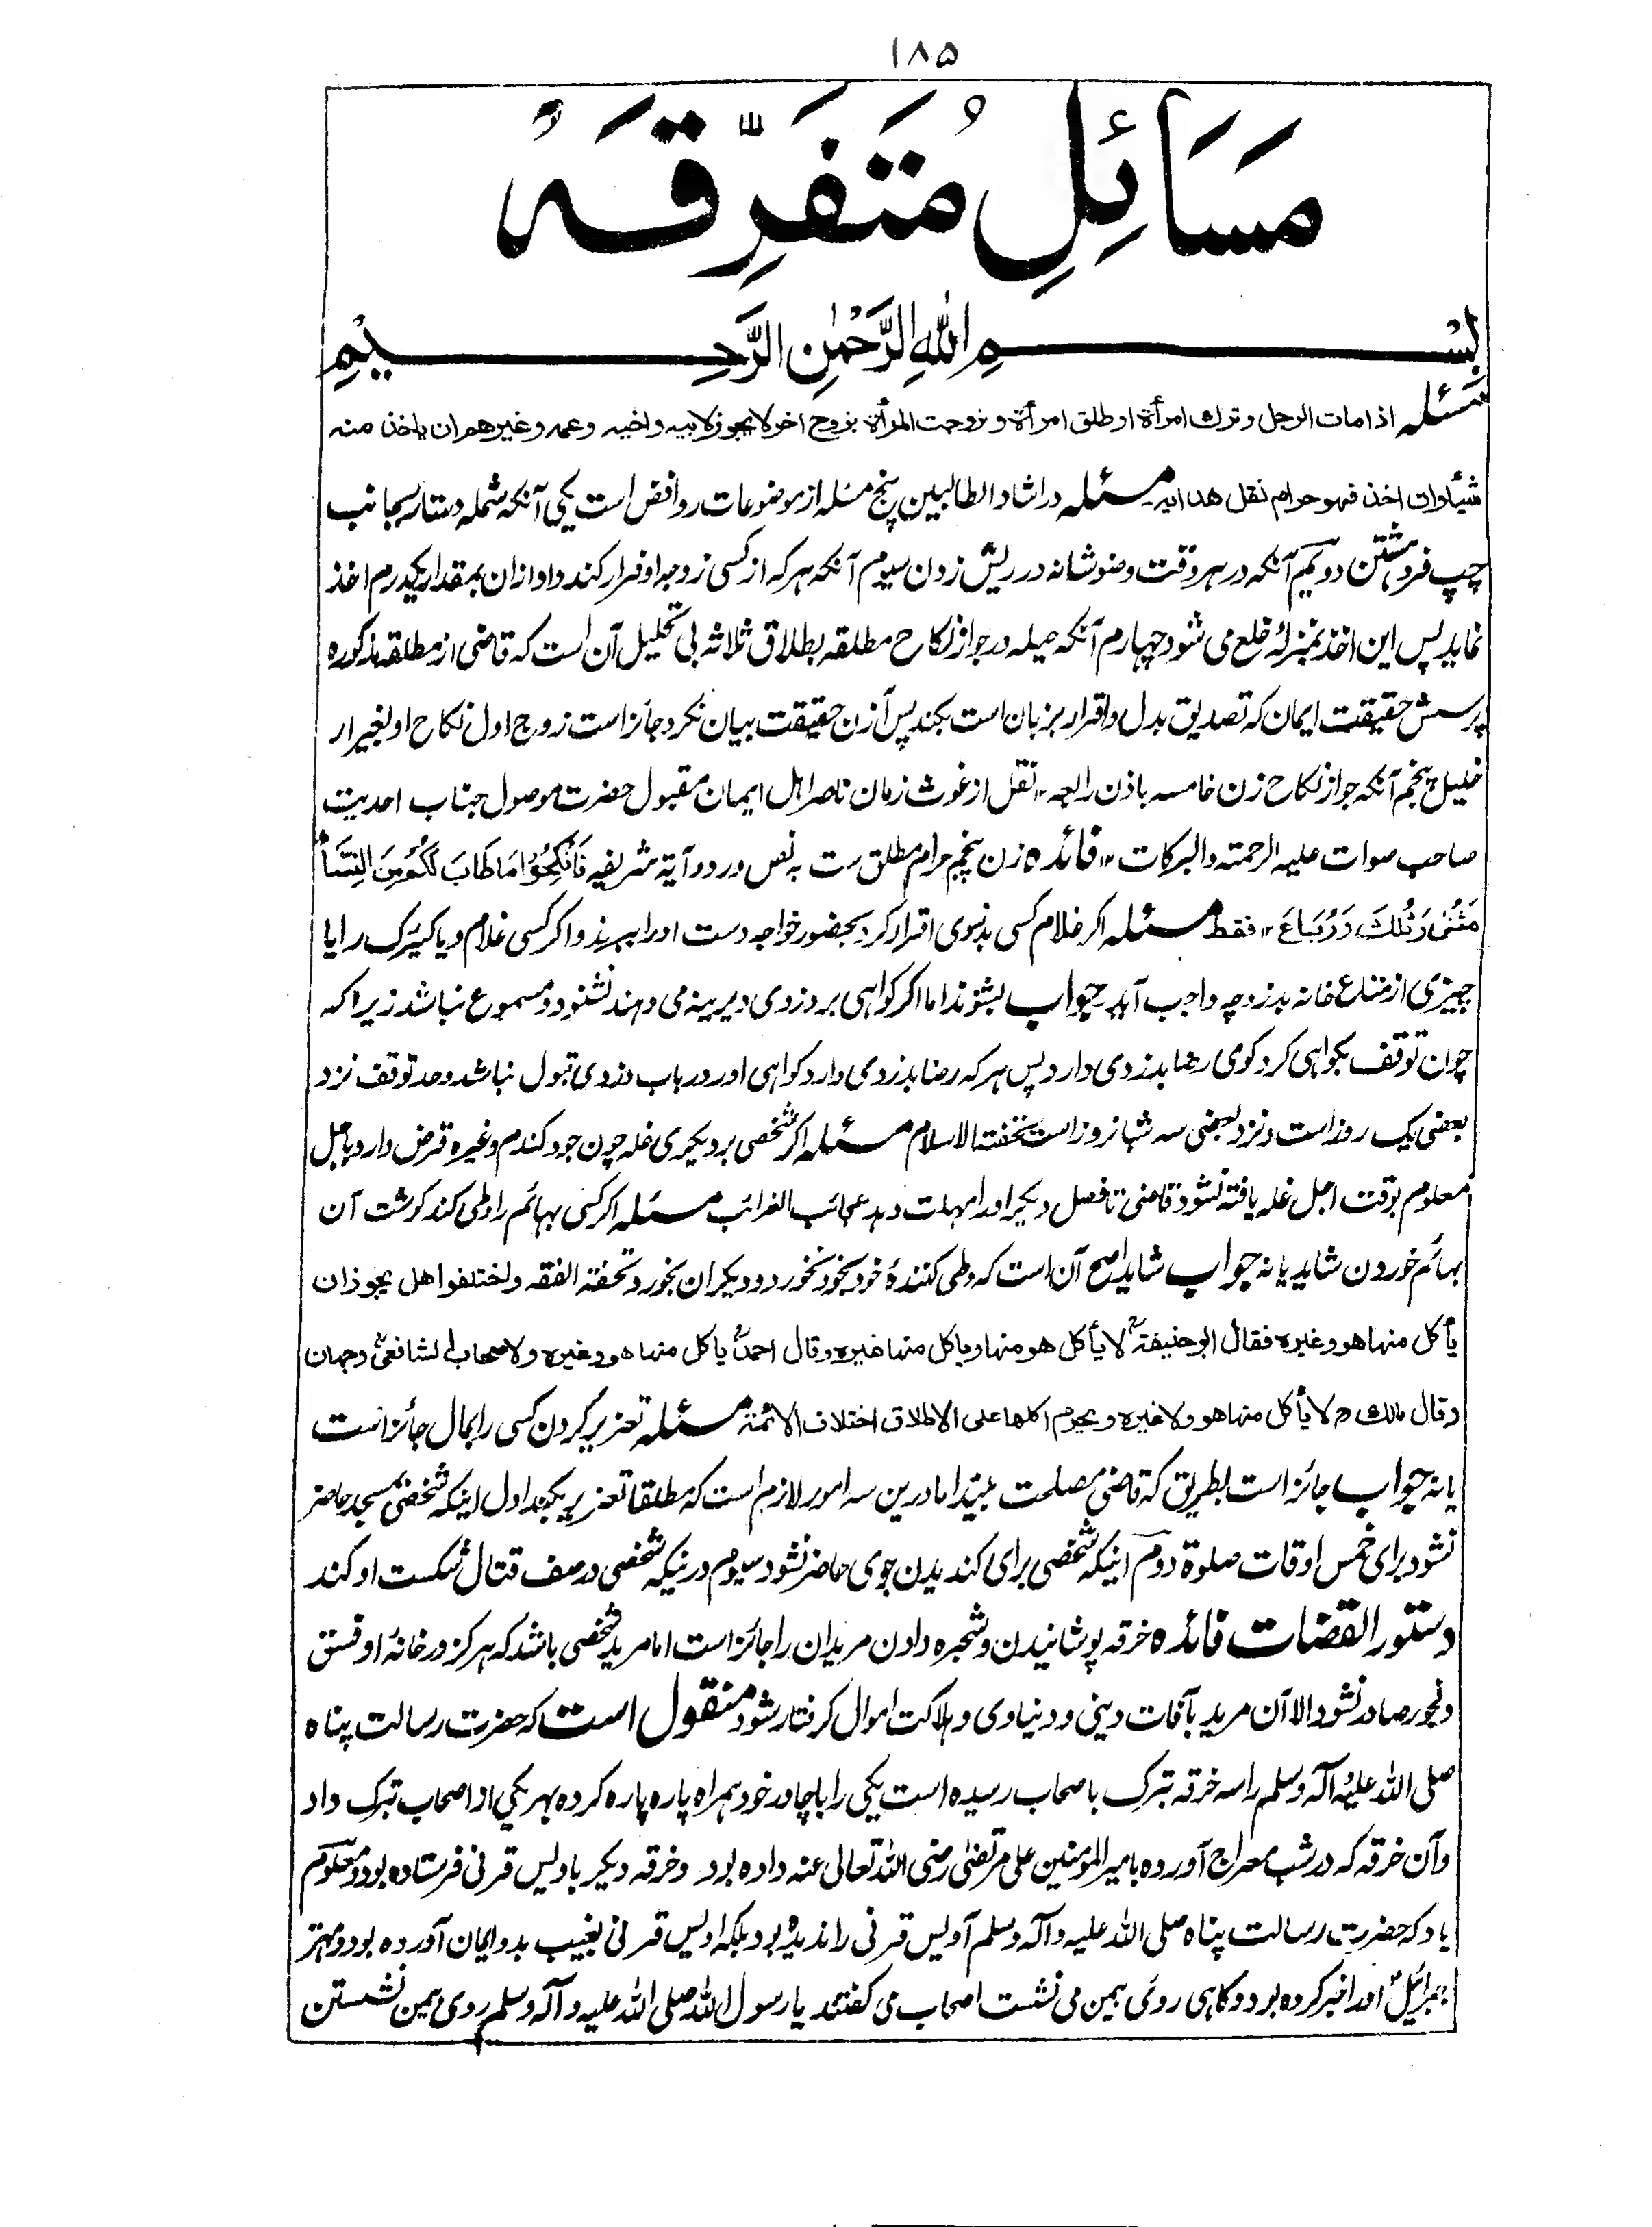 ۱۸۵
مَسَائِلِ مُتَفَرِّقَہْ
بِسْمِ اللهِ الرَّحْمٰنِ الرَّحِیْمِ
مسئله اذا مات الرجل وترك امرأة او طلق امرأة و زوجت المرأة بزوج اخر لا یجوز لابیه واخیه وعمه وغیرهم ان یاخذ منه
شیئا وان اخذ فهو حرام نقل هدایه مسئله در ارشاد الطالبین پنج مسئله از موضوعات روافض است یکی آنکه شمله دستار بجانب
چپ فروهشتن دویم آنکه در هر وقت وضو شانه در ریش زدن سیوم آنکه هر که از کسی زوجه او فرار کند و او ازان بمقدار یکدرم اخذ
نماید پس این اخذ بمنزلهٔ خلع می شود چهارم آنکه حیله در جواز نکاح مطلقه بطلاق ثلاثه بی تحلیل آن است که قاضی از مطلقه مذکوره
پرسش حقیقت ایمان که تصدیق بدل و اقرار بزبان است بکند پس آن زن حقیقت بیان نکرد جائز است زوج اول نکاح او بغیر ار
خلیل پنجم آنکه جواز نکاح زن خامسه باذن رابعه ۱۲ نقل از غوث زمان ناصر اهل ایمان مقبول حضرت موصول جناب احدیت
صاحب صوات علیه الرحمته والبرکات ۱۲ فائده زن پنجم حرام مطلق ست به نص ورود آیة شریفه فَانْکِحُوْا مَا طَابَ لَکُمْ مِنَ النِّسَآءِ
مَثْنٰی وَثُلٰثَ وَرُبَاعَ ۱۲ فقط مسئله اکر غلام کسی بدزدی اقرار کرد بحضور خواجه دست او را ببرند و اکر کسی غلام و یا کنیزک را یا
چیزی از متاع خانه بدزد چه واجب آید جواب بشنوند اما اکر کواهی بر دزدی دیرینه می دهند نشنود و مسموع نباشد زیرا که
چون توقف بکواهی کرد کوی رضا بدزدی دارد پس هر که رضا بدزدی دارد کواهی او در باب دزدی قبول نباشد وحد توقف نزد
بعضی یک روز است و نزد بعضی سه شبانروز است تحفة الاسلام مسئله اکر شخصی بر دیکری غله چون جو و کندم وغیره قرض دارد باجل
معلوم بوقت اجل غله یافته نشود قاضی تا فصل دیکر او را مهلت دهد عجائب الغرائب مسئله اکر کسی بهائم را وطی کند کوشت آن
بهائم خوردن شاید یا نه جواب شاید اصح آن است که وطی کنندهٔ خود بخود نخورد و دیکران بخورد تحفة الفقه واختلفوا هل یجوز ان
یأکل منها هو وغیره فقال ابو حنیفة لا یأکل هو منها ویاکل منها غیره وقال احمد یاکل منها هو وغیره ولاصحاب الشافعی وجهان
وقال مالك لا یأکل منها هو ولا غیره ویحرم اکلها علی الاطلاق اختلاف الائمة مسئله تعزیر کردن کسی را بمال جائز است
یا نه جواب جائز است بطریق که قاضی مصلحت بیند اما درین سه امور لازم است که مطلقا تعزیر بکند اول اینکه شخصی بمسجد حاضر
نشود برای خمس اوقات صلوة دوم اینکه شخصی برای کندیدن جوی حاضر نشود سیوم درنیکه شخصی در صف قتال شکست او کند
دستور القضات فائده خرقه پوشانیدن و شجره دادن مریدان را جائز است اما مرید شخصی باشد که هرکز در خانهٔ او فسق
و فجور صادر نشود والا آن مرید بآفات دینی و دنیاوی و هلاکت اموال کرفتار شود منقول است که حضرت رسالت پناه
صلی الله علیه وآله وسلم را سه خرقه تبرک باصحاب رسیده است یکی را با چادر خود همراه پاره پاره کرده بهر یکی از اصحاب تبرک داد
و آن خرقه که در شب معراج آورده بامیرالمؤمنین علی مرتضی رضی الله تعالی عنه داده بود وخرقه دیکر باویس قرنی فرستاده بود و معلوم
باد که حضرت رسالت پناه صلی الله علیه وآله وسلم اویس قرنی را ندیده بود بلکه اویس قرنی بغیب بدو ایمان آورده بود و مهتر
جبرائیل او را خبر کرده بود و کاهی روئی بیمن می نشست اصحاب می کفتند یا رسول الله صلی الله علیه وآله وسلم روی بیمن نشستن